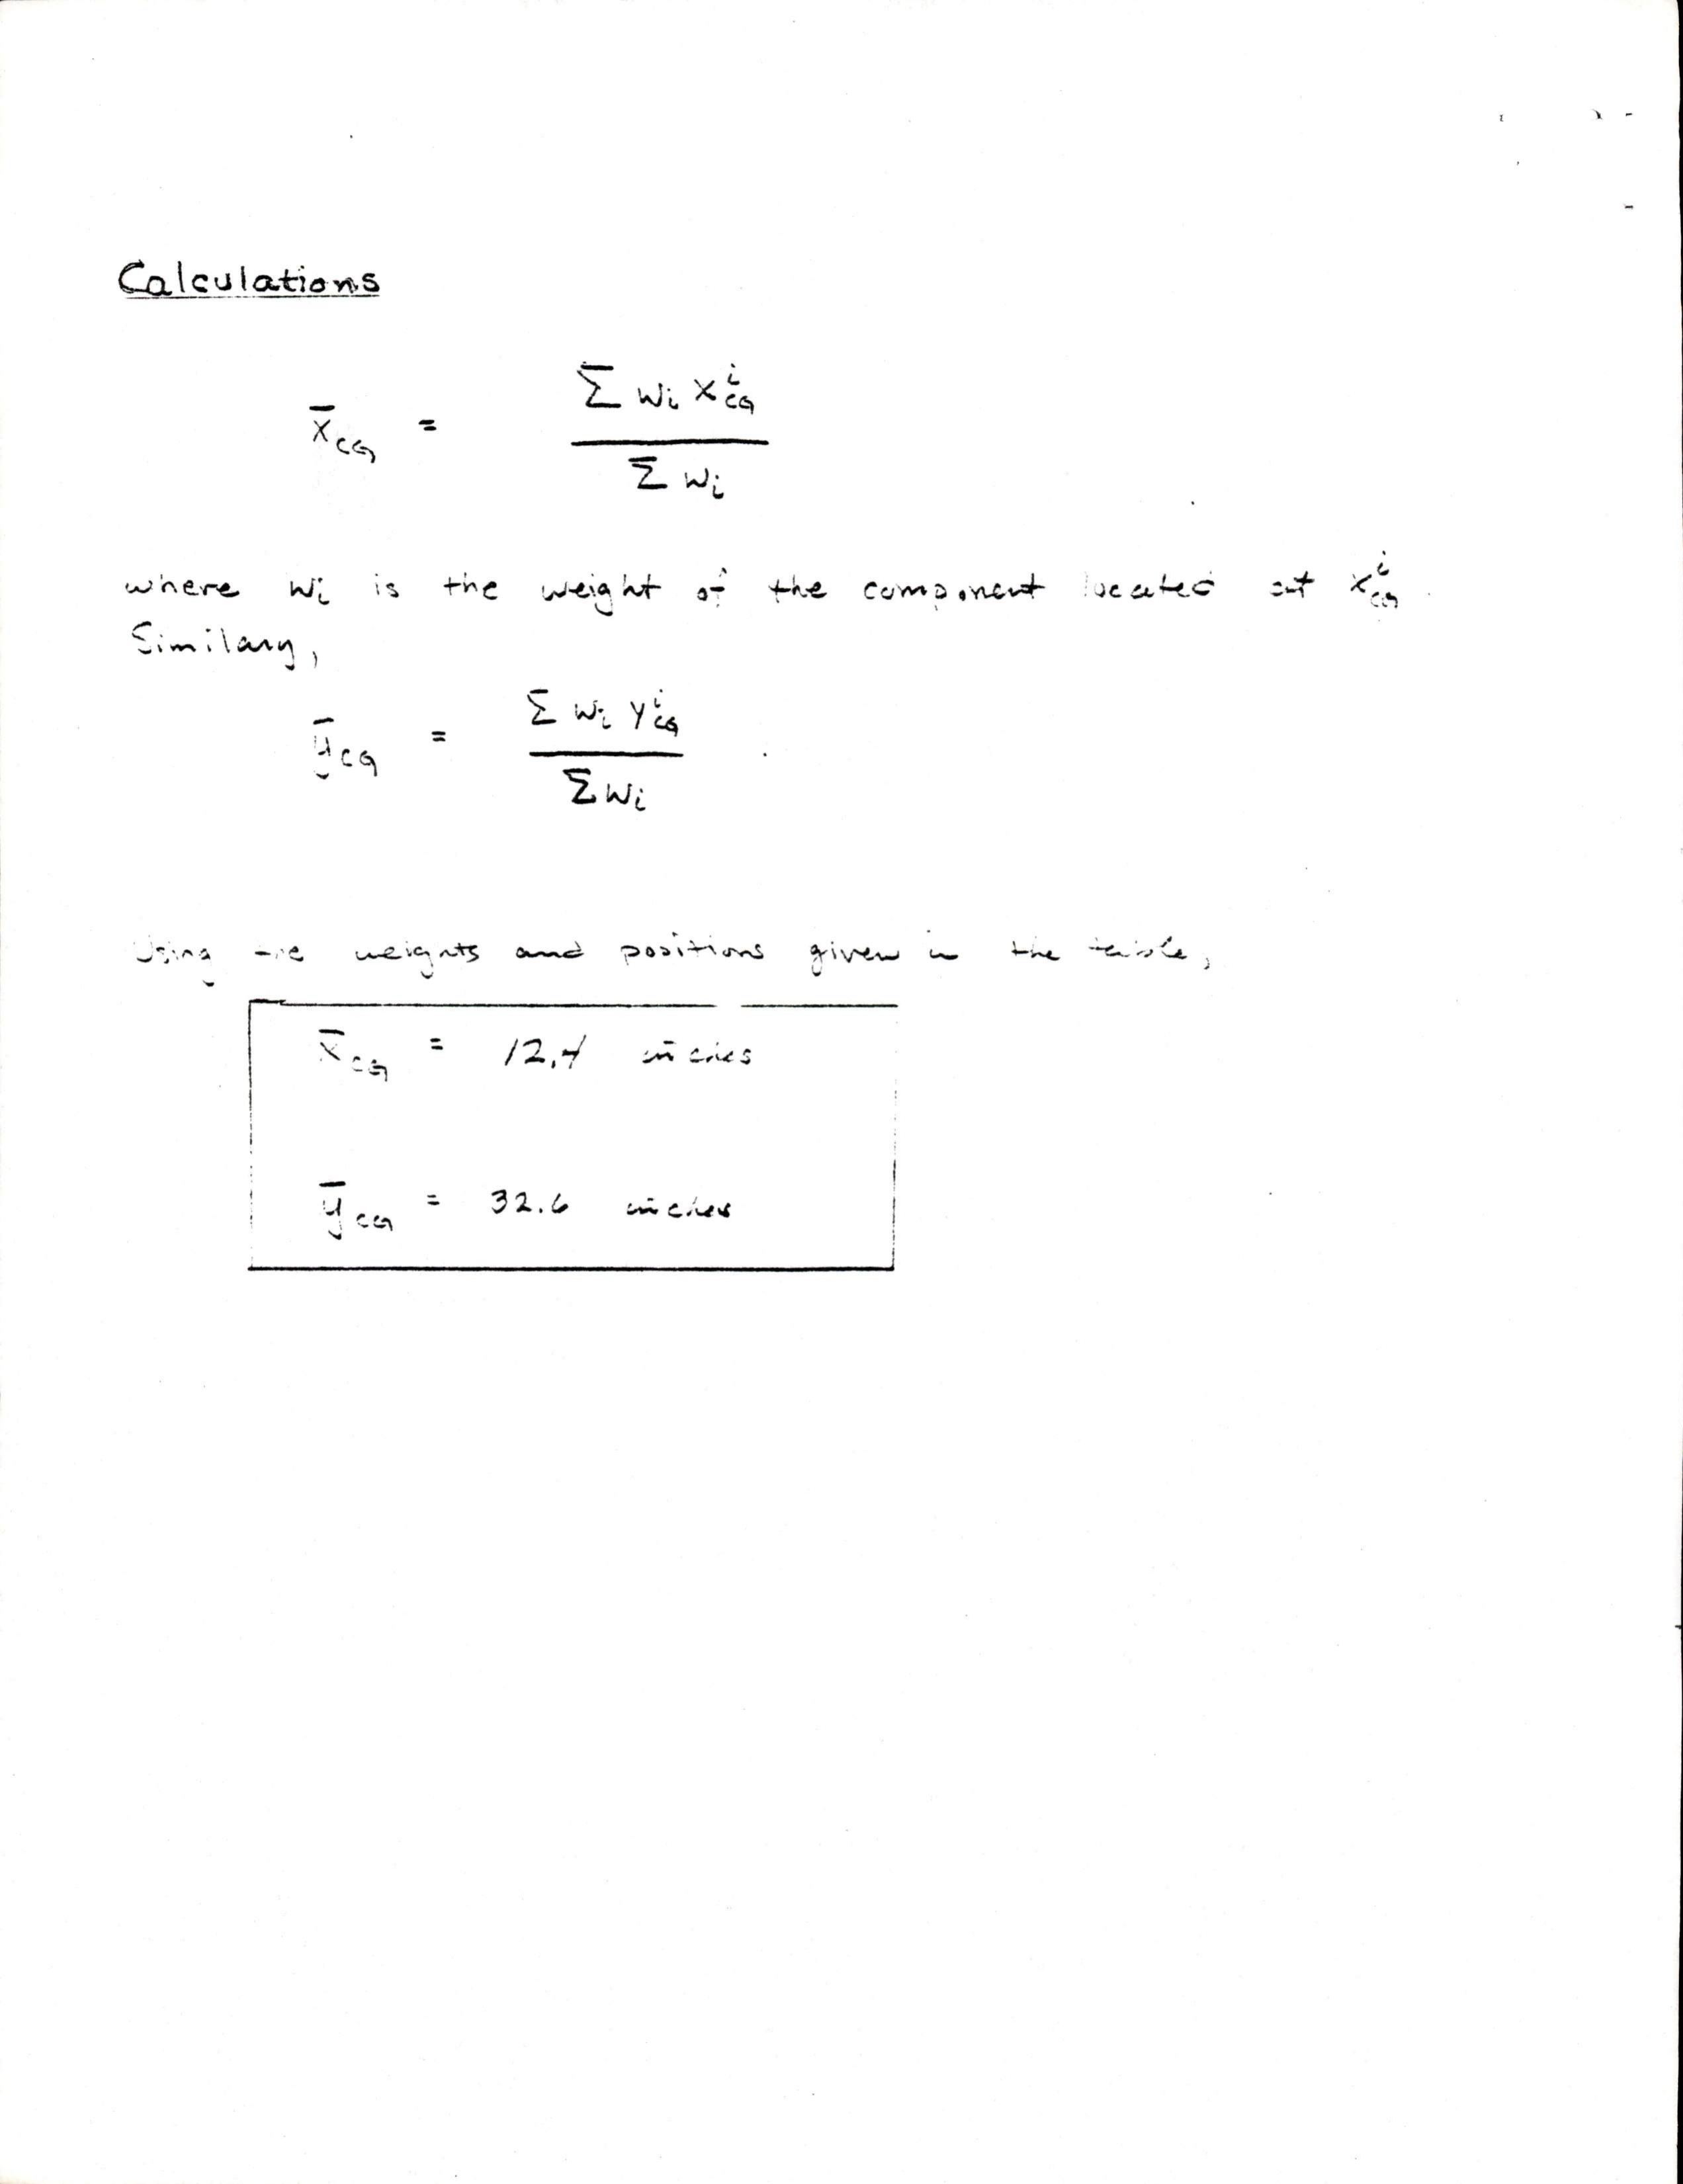 Calculations
x̄CG = Σ Wi x^i_CG
Σ Wi
where Wi is the weight of the component located at x^i_CG.
Similary,
ȳCG = Σ Wi y^i_CG
Σ Wi
Using the weights and positions given in the table,
x̄CG = 12.4 inches
ȳCG = 32.6 inches